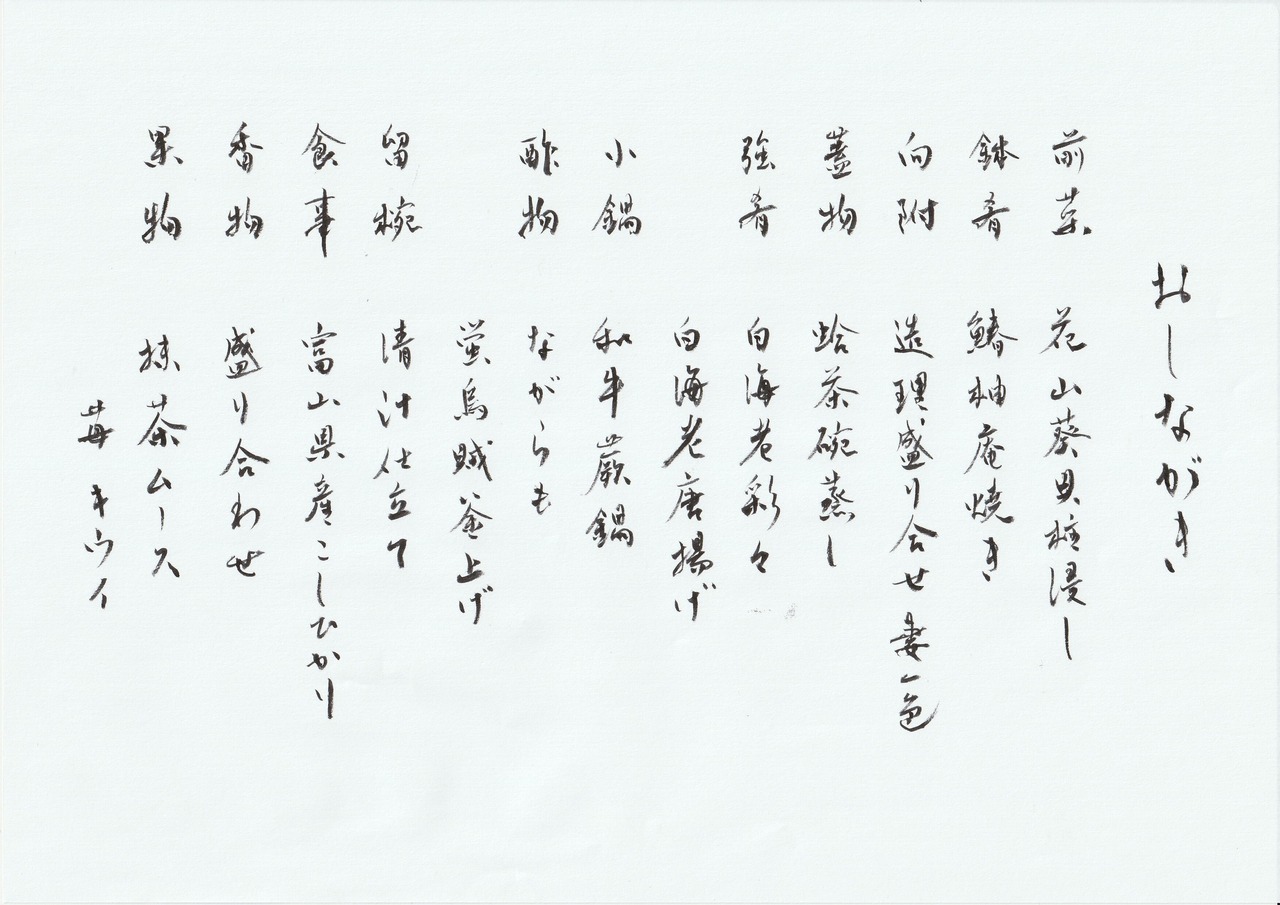 おしながき
前菜 花山葵貝柱浸し
鉢肴 鰆柚庵焼き
向附 造理盛り合せ 妻一色
蓋物 蛤茶碗蒸し
強肴 白海老彩々
白海老唐揚げ
小鍋 和牛蕨鍋
酢物 ながらも
蛍烏賊釜上げ
留椀 清汁仕立て
食事 富山県産こしひかり
香物 盛り合わせ
果物 抹茶ムース
苺 キウイ